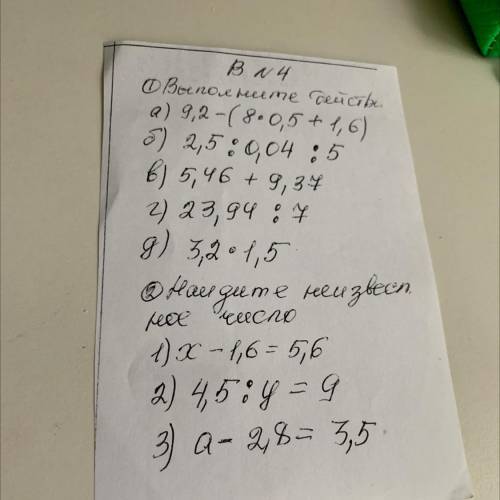 В №4
① Выполните действ.
а) 9,2-(8·0,5+1,6)
б) 2,5:0,04:5
в) 5,46 + 9,37
г) 23,94 : 7
д) 3,2·1,5
② Найдите неизвест
ное число
1) x - 1,6 = 5,6
2) 4,5 : y = 9
3) a - 2,8 = 3,5